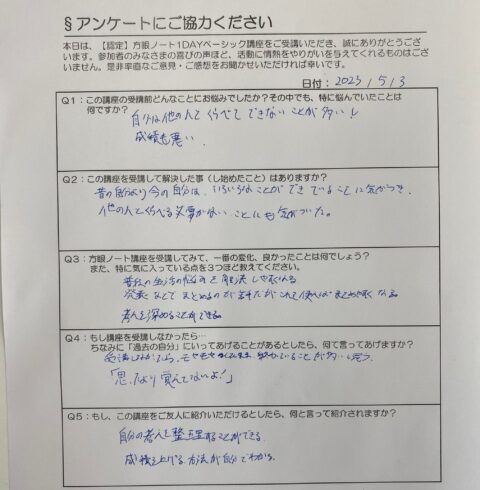 §アンケートにご協力ください
本日は、【認定】方眼ノート1DAYベーシック講座をご受講いただき、誠にありがとうござ
います。参加者のみなさまの喜びの声ほど、活動に情熱をやりがいを与えてくれるものはござ
いません。是非率直なご意見・ご感想をお聞かせいただければ幸いです。
日付: 2023/5/3
Q1：この講座の受講前どんなことにお悩みでしたか？その中でも、特に悩んでいたことは
何ですか？
自分は他の人とくらべてできないことが多いし
成績も悪い
Q2：この講座を受講して解決した事（し始めたこと）はありますか？
昔の自分より今の自分は、いろいろなことができていることに気がつき
他の人とくらべる必要がないことにも気がついた。
Q3：方眼ノート講座を受講してみて、一番の変化、良かったことは何でしょう？
また、特に気に入っている点を3つほど教えてください。
普段の生活の悩みを解決しやすくなる
発表などでまとめるのが苦手だがこれで使えばまとめやすくなる
考えを深めることができる
Q4：もし講座を受講しなかったら…
ちなみに「過去の自分」にいってあげることがあるとしたら、何て言ってあげますか？
受講しなかったら、モヤモヤ ことが多いと思う.
「思ったより覚えてないよ！」
Q5：もし、この講座をご友人に紹介いただけるとしたら、何と言って紹介されますか？
自分の考えを整理することができる
成績を上げる方法が自分でわかる